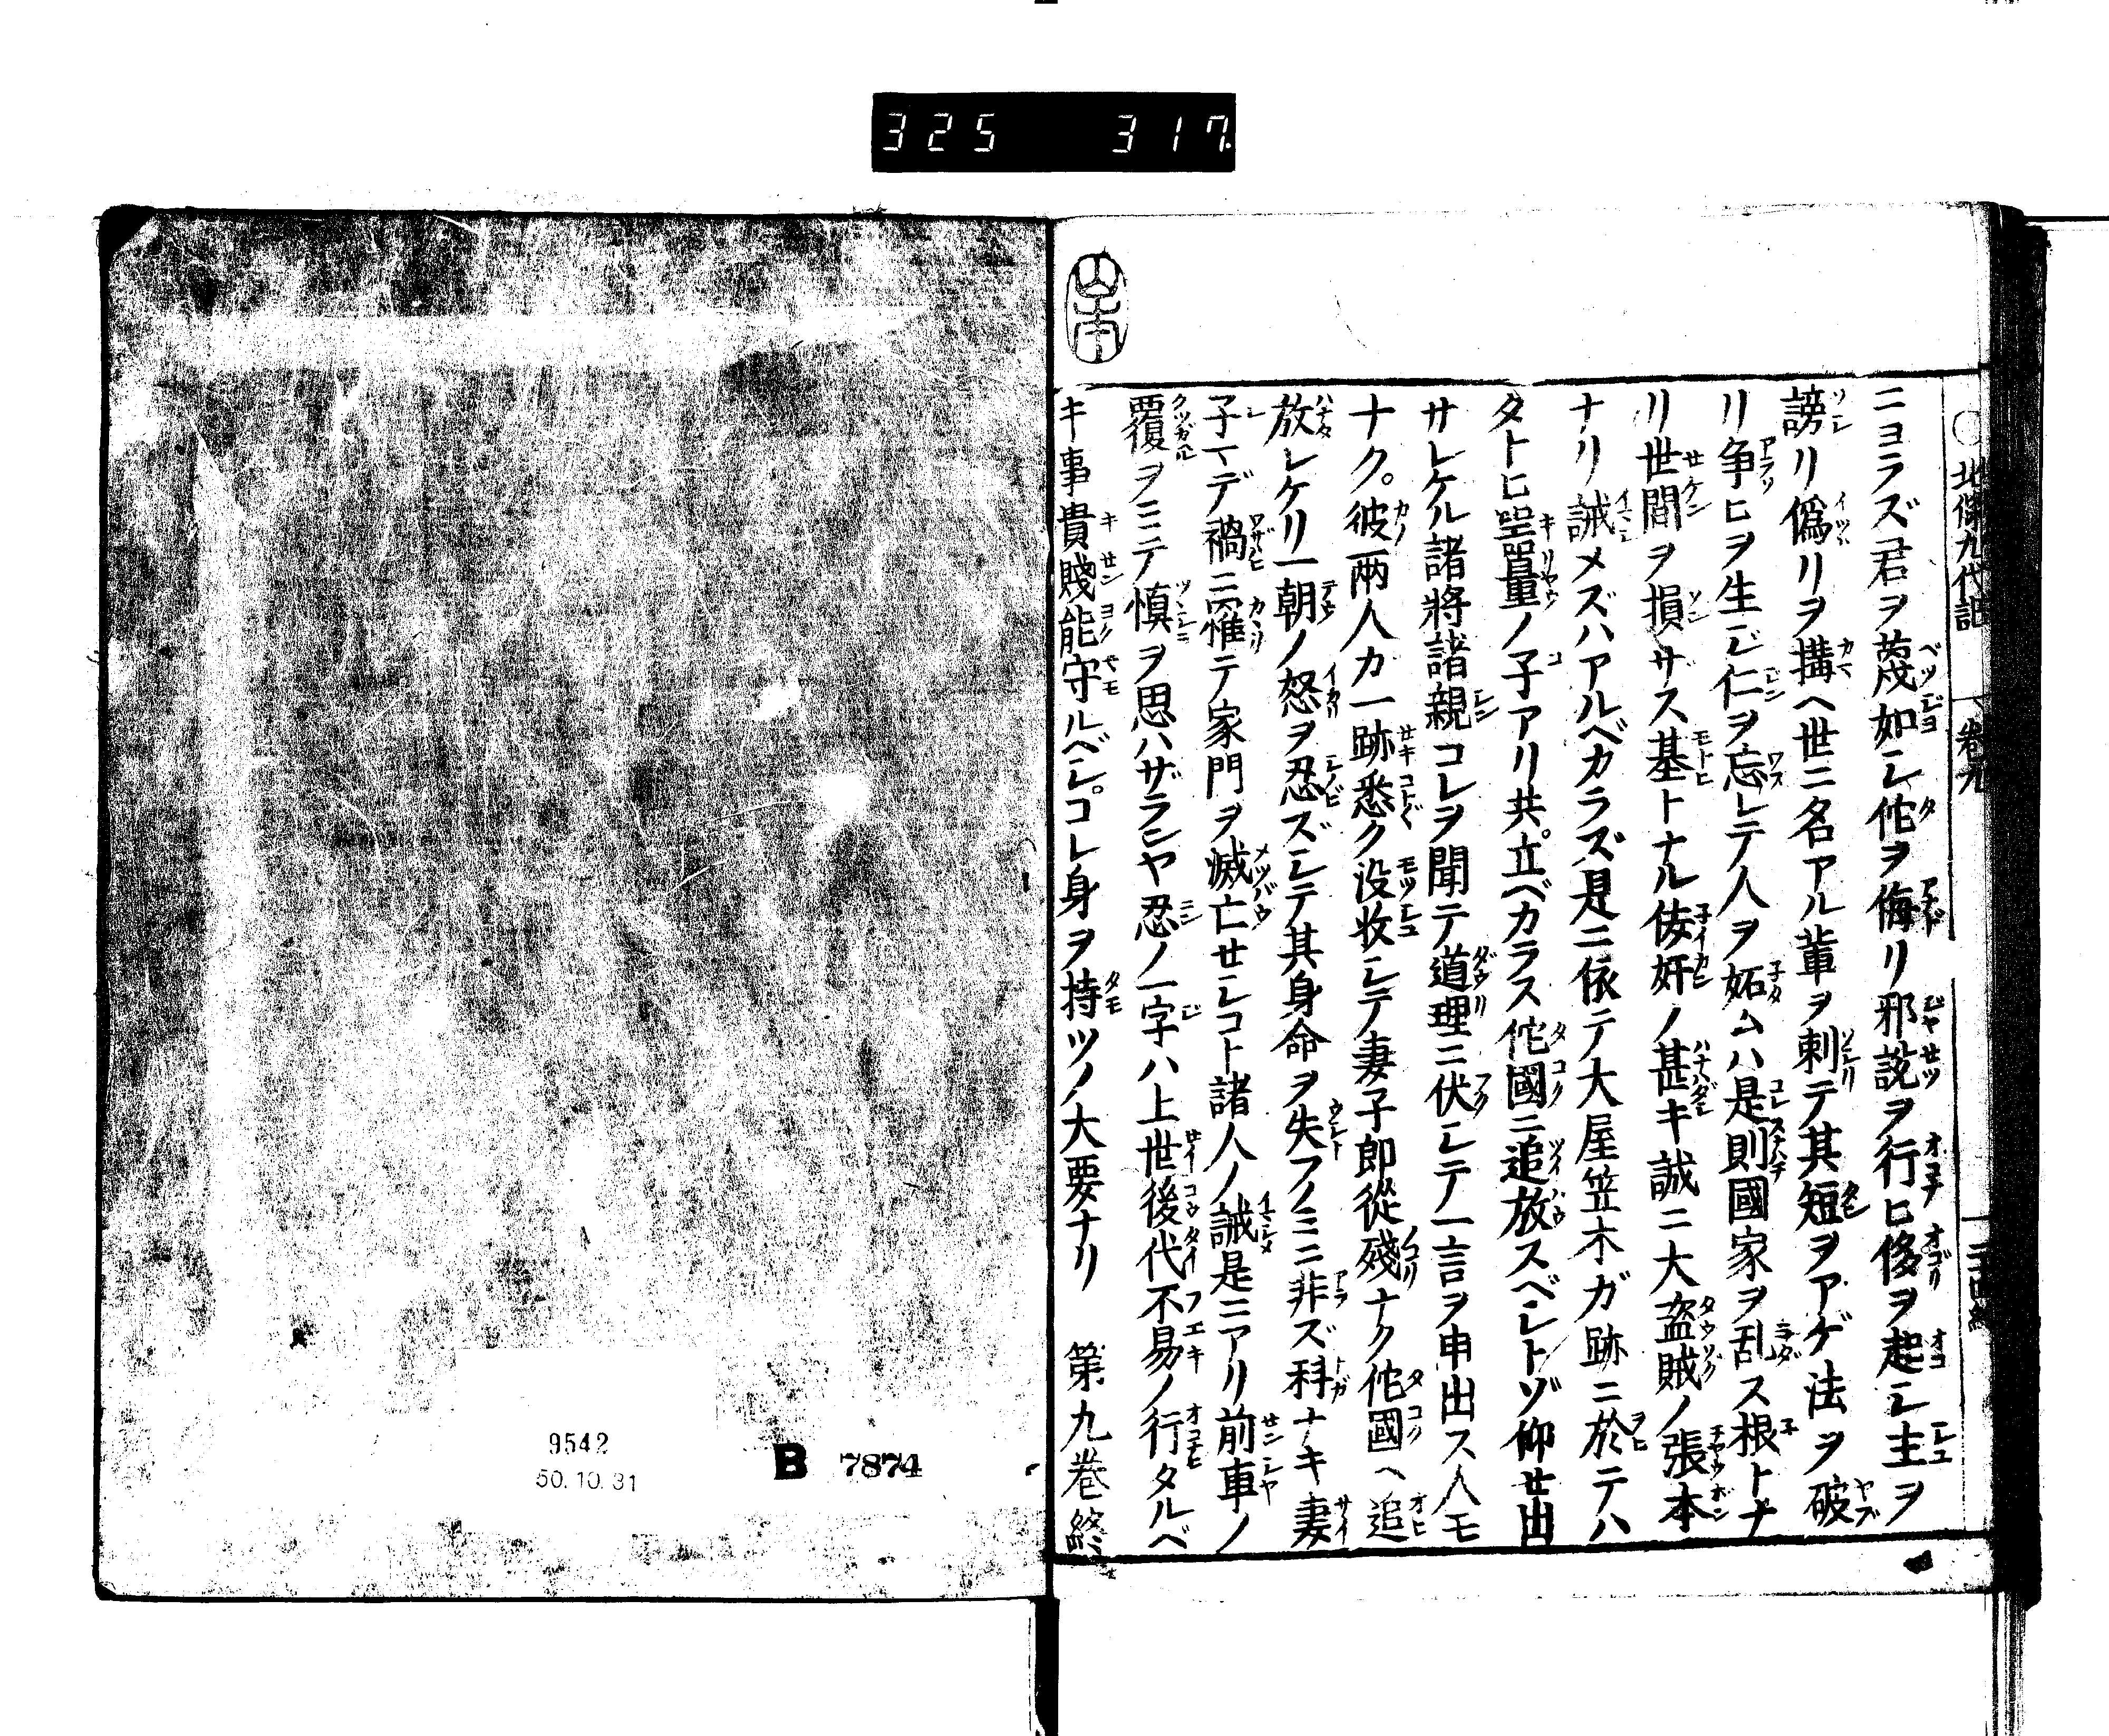 325 317
北條九代記 卷九
ニヨラズ君ヲ蔑如シ佗ヲ侮リ邪説ヲ行ヒ侈ヲ起シ主ヲ
謗リ僞リヲ搆ヘ世ニ名アル輩ヲ刺テ其短ヲアゲ法ヲ破
リ争ヒヲ生ジ仁ヲ忘レテ人ヲ妬ムハ是則國家ヲ乱ス根トナ
リ世間ヲ損サス基トナル佞奸ノ甚キ誠ニ大盗賊ノ張本
ナリ誡メズハアルベカラズ是ニ依テ大屋笠木ガ跡ニ於テハ
タトヒ噐量ノ子アリ共立ベカラス佗國ニ追放スベシトゾ仰せ出
サレケル諸將諸親コレヲ聞テ道理ニ伏シテ一言ヲ申出ス人モ
ナク。彼兩人カ一跡悉ク没收シテ妻子郎從殘ナク佗國ヘ追
放シケリ一朝ノ怒ヲ忍ズシテ其身命ヲ失フノミニ非ズ科ナキ妻
子マデ禍ニ罹テ家門ヲ滅亡セシコト諸人ノ誡是ニアリ前車ノ
覆ヲミテ慎ヲ思ハザランヤ忍ノ一字ハ上世後代不易ノ行タルベ
キ事貴賤能守ルベシ。コレ身ヲ持ツノ大要ナリ 第九巻終
9542
50.10.31
B 7874